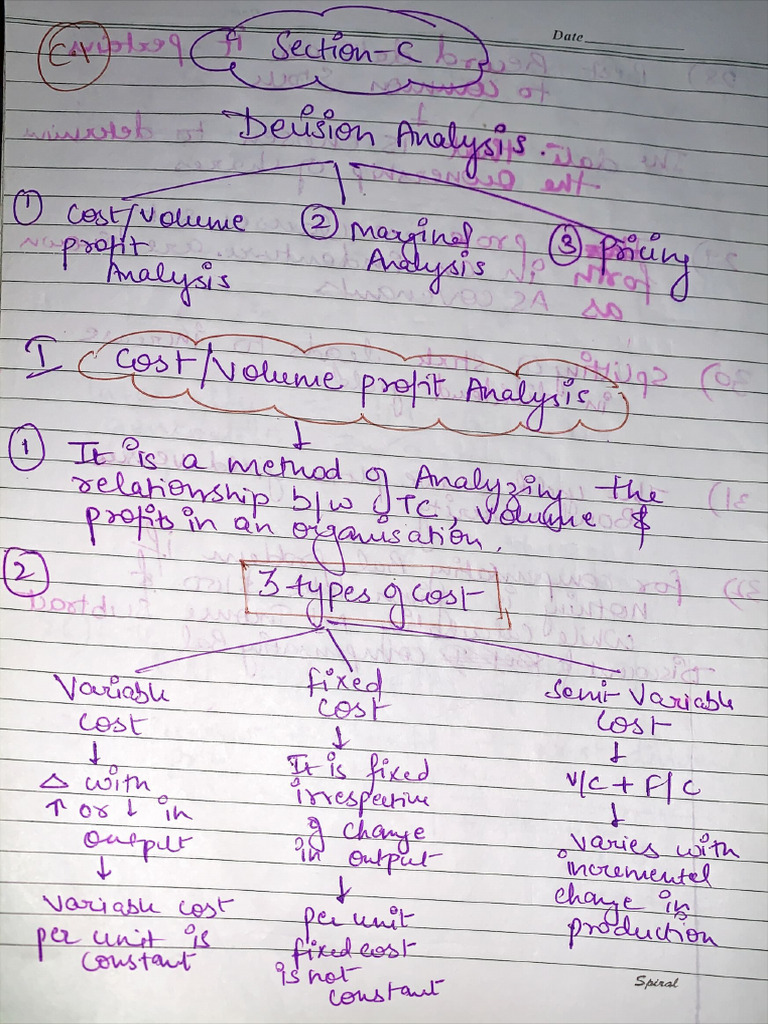 Date
C1
Section-C
Decision Analysis.
① Cost/Volume profit Analysis
② Marginal Analysis
③ Pricing
I Cost/Volume profit Analysis
① It is a method of Analyzing the
relationship b/w TC, Volume &
profits in an organisation.
② 3 types of cost
Variable
cost
↓
△ with
↑ or ↓ in
output
↓
Variable cost
per unit is
constant
fixed
cost
↓
It is fixed
irrespective
of change
in output
↓
per unit
fixed cost
is not
constant
Semi-Variable
Cost
↓
V/C + F/C
↓
varies with
incremental
change in
production
Spiral